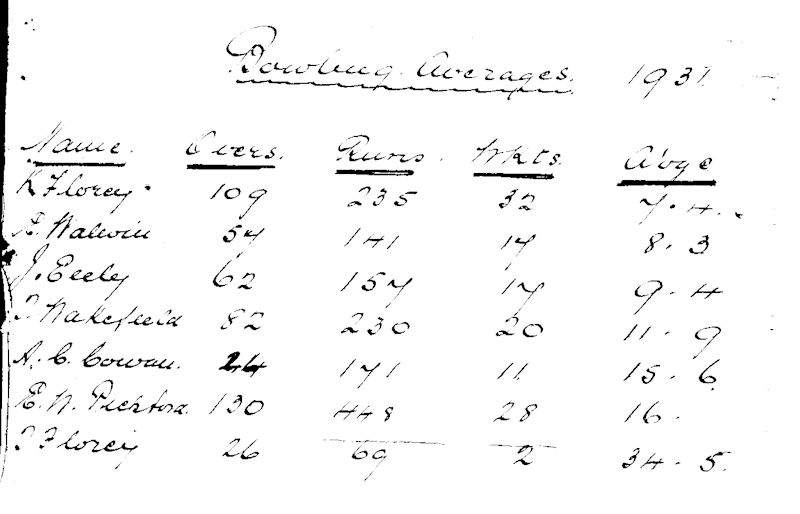 Bowling Averages. 1937
Name. Overs. Runs. Wkts. Av'ge
K Florey. 109 235 32 7.4.
A. Walwin 57 141 17 8.3
J. Eeely 62 157 17 9.4
T. Wakefield 82 230 20 11.9
A. C. Cowan. 24 171 11 15.6
E. N. Pickford. 130 448 28 16.
T Florey 26 69 2 34.5.